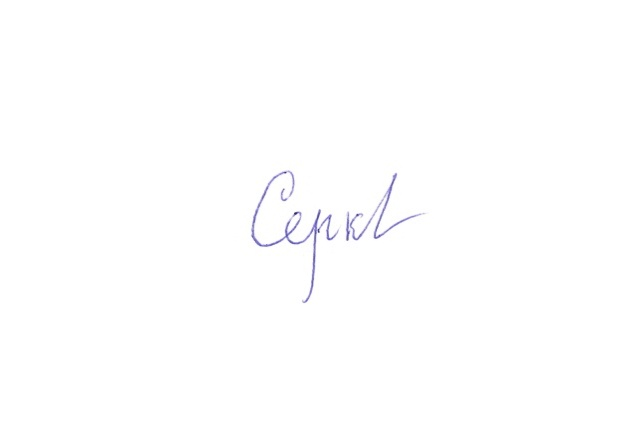 Серкв